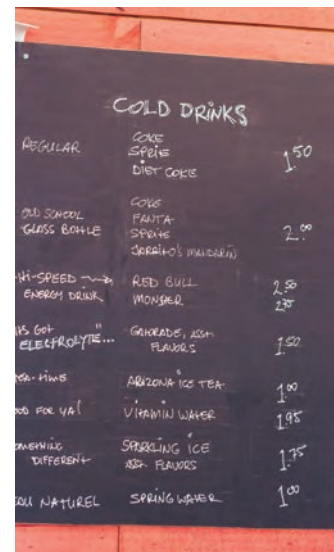 COLD DRINKS
REGULAR
COKE
SPRITE
DIET COKE
1.50
OLD SCHOOL
GLASS BOTTLE
COKE
FANTA
SPRITE
JARRITO'S MANDARIN
2.00
HI-SPEED
ENERGY DRINK
RED BULL 2.50
MONSTER 2.75
GOT
ELECTROLYTE"...
GATORADE, ASST
FLAVORS
1.50
TIME ARIZONA ICE TEA 1.00
FOR YA! VITAMIN WATER 1.95
DIFFERENT
SPARKLING ICE
ASST FLAVORS
1.75
NATUREL SPRING WATER 1.00